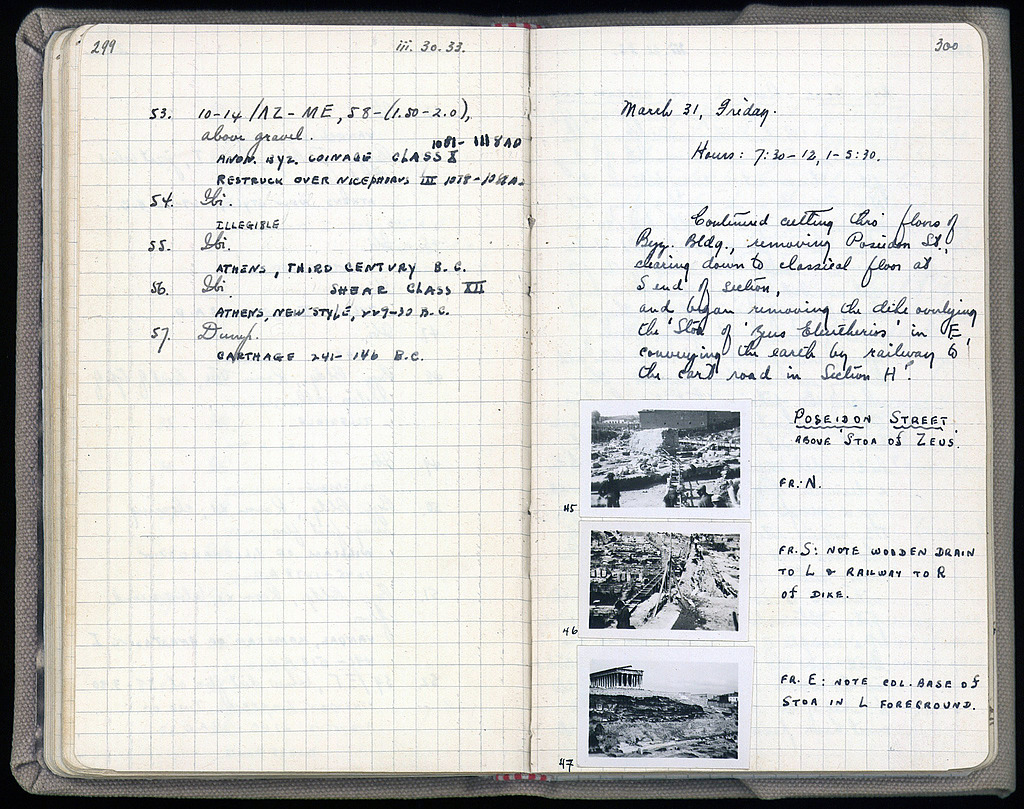 299
iii. 30. 33.
53. 10-14/ΛΖ-ΜΕ, 58-(1.50-2.0),
above gravel. 1081-1118 AD
ANON. BYZ. COINAGE CLASS X
RESTRUCK OVER NICEPHORUS III 1078-1081 A.
54. Ibi.
ILLEGIBLE
55. Ibi.
ATHENS, THIRD CENTURY B.C.
56. Ibi. SHEAR CLASS XII
ATHENS, NEW STYLE, 229-30 B.C.
57. Dump.
CARTHAGE 241-146 B.C.
300
March 31, Friday.
Hours: 7:30-12, 1-5:30.
Continued cutting thro' floors of
Byz. Bldg., removing Poseidon St.,
clearing down to classical floor at
S end of section,
and began removing the dike overlying
the 'Stoa of Zeus Eleutherios' in E
conveying the earth by railway to
the cart road in Section H'.
POSEIDON STREET
ABOVE 'STOA OF ZEUS'.
45
FR. N.
46
FR. S: NOTE WOODEN DRAIN
TO L & RAILWAY TO R
OF DIKE.
47
FR. E: NOTE COL. BASE OF
STOA IN L FOREGROUND.